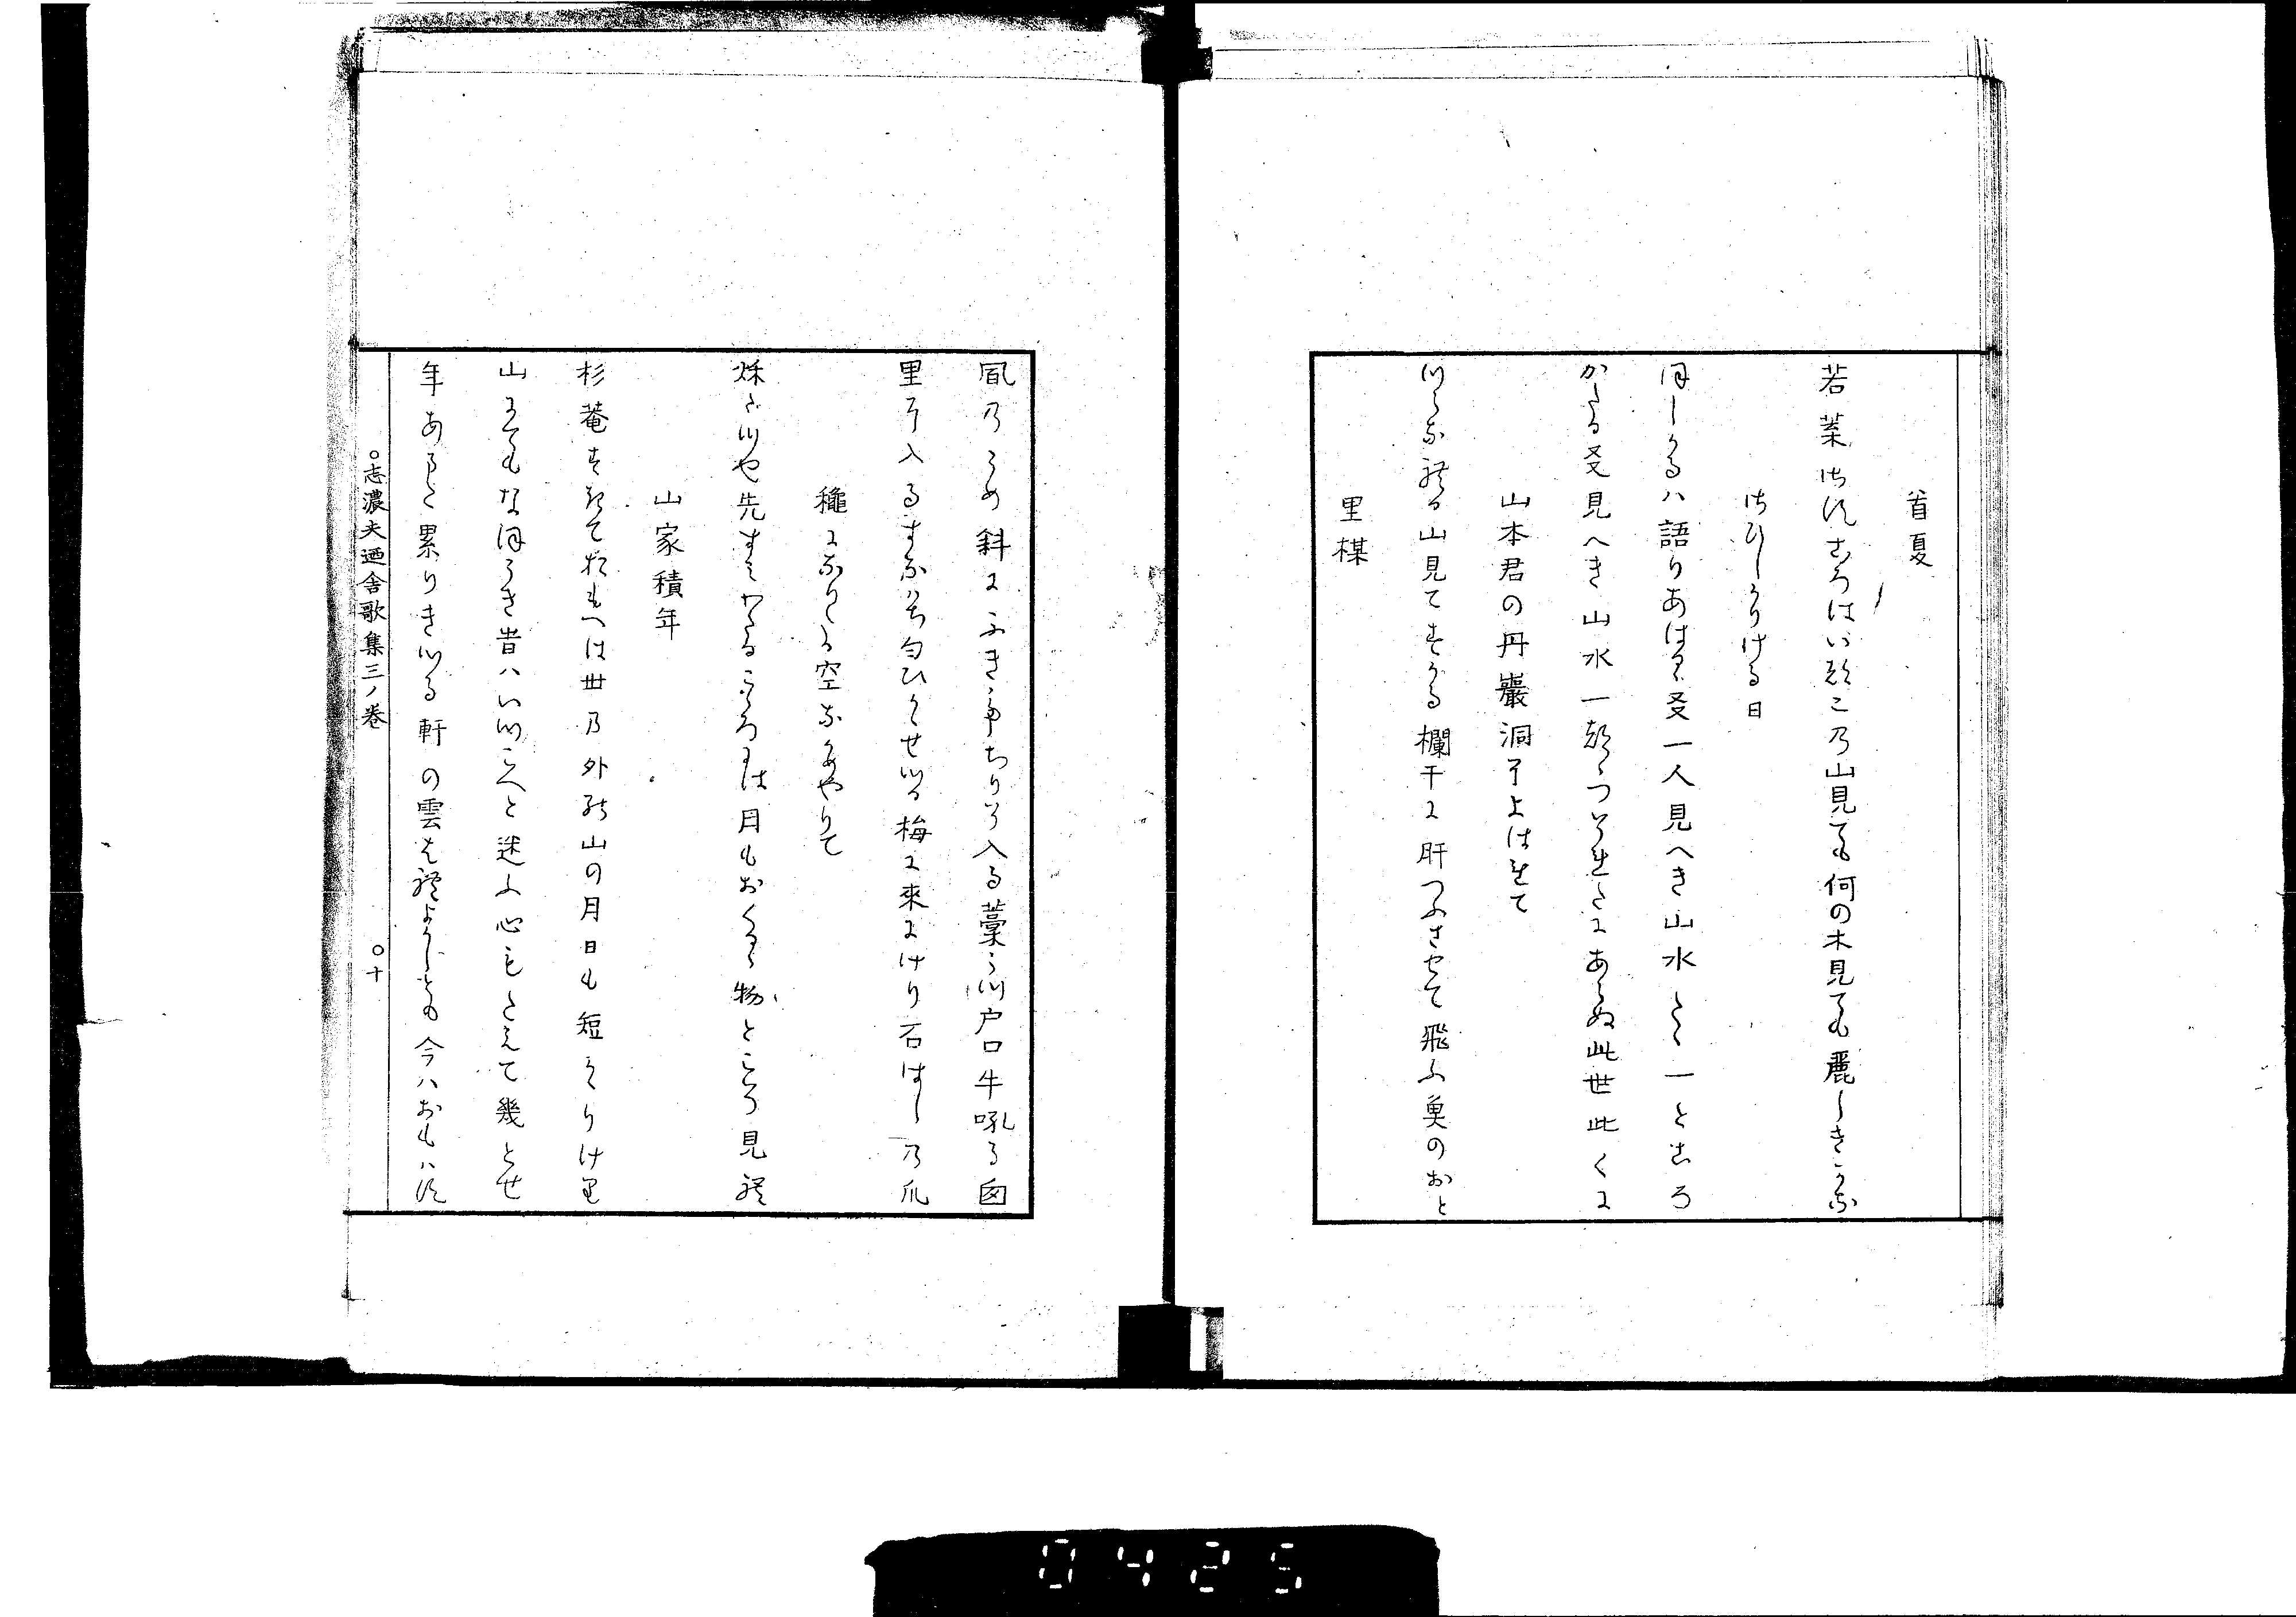 首夏
若葉さすころはいつこの山見ても何の木見ても麗しきかな
さひしかりける日
ほしかるハ語りあはるゝ友一人見へき山水たゝ一ところ
かたる友見へき山水一つたにあらぬ此世此くに
山本君の丹巖洞によはれて
つらなれる山見てすかる欄干に肝つふさせて飛ふ魚のおと
里楳
風のうめ斜にふき
入る藁うつ戸口牛吼る
里に入る
匂ひかせつる梅に来にけり石はしの爪
穐になりし空なかめやりて
秌たつや先すみわたるこゝろには月もおくるゝ物ところ見れ
山家積年
杉菴すみておもへは世の外の山の月日も短かゝりけり
山にてもなほうき昔ハいつこへと迷ふ心もたえて幾とせ
年あまた累りきつる軒の雲はれよかしとも今ハおもハす
○志濃夫廼舎歌集三ノ巻 ○十
0425